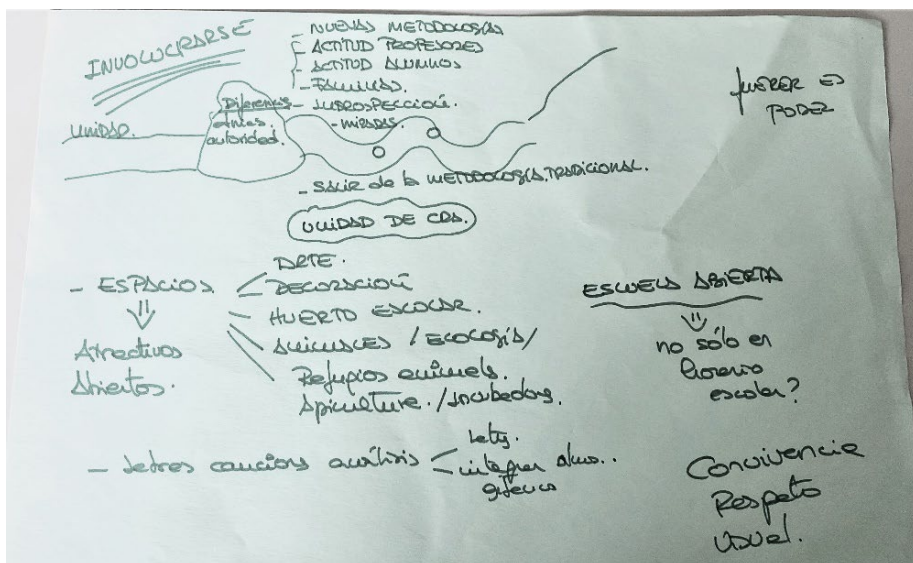 INVOLUCRARSE
- NUEVAS METODOLOGÍAS
- ACTITUD PROFESORES
- ACTITUD ALUMNOS
- FAMILIAS.
- INTROSPECCIÓN.
- MIRADAS.
UNIDAD.
Diferencias
autoridad.
QUERER ES
PODER
- SALIR de la METODOLOGÍA TRADICIONAL.
UNIDAD DE CRA.
- ESPACIOS
Atractivos
Abiertos.
ARTE.
DECORACIÓN
HUERTO ESCOLAR.
ANIMALES / ECOLOGÍA /
Refugios animals.
Apicultura. / Incubadora.
ESCUELA ABIERTA
no sólo en
horario
escolar?
- Letras cancions análisis
integrar
Convivencia
Respeto